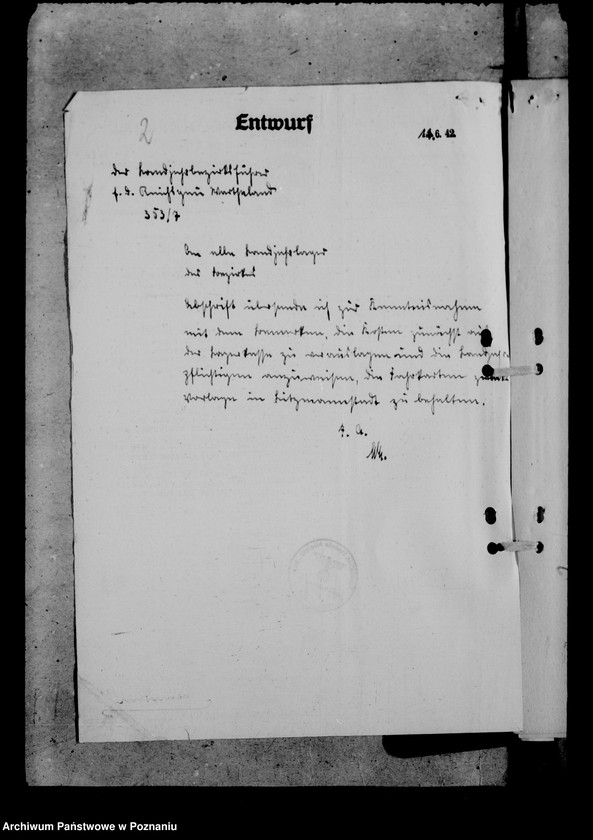 2
Entwurf
16.6.42
Der Landjahrbezirksführer
f. d. Reichsgau Wartheland
353/7
An alle Landjahrlager
des Bezirkes
Abschrift übersende ich zur Kenntnisnahme
mit dem Bemerken, die Kosten zunächst aus
der Lagerkasse zu verauslagen und die Landjahr
pflichtigen anzuweisen, die Fahrkarten zur
Vorlage in Litzmannstadt zu behalten.
I. A.
Archiwum Państwowe w Poznaniu